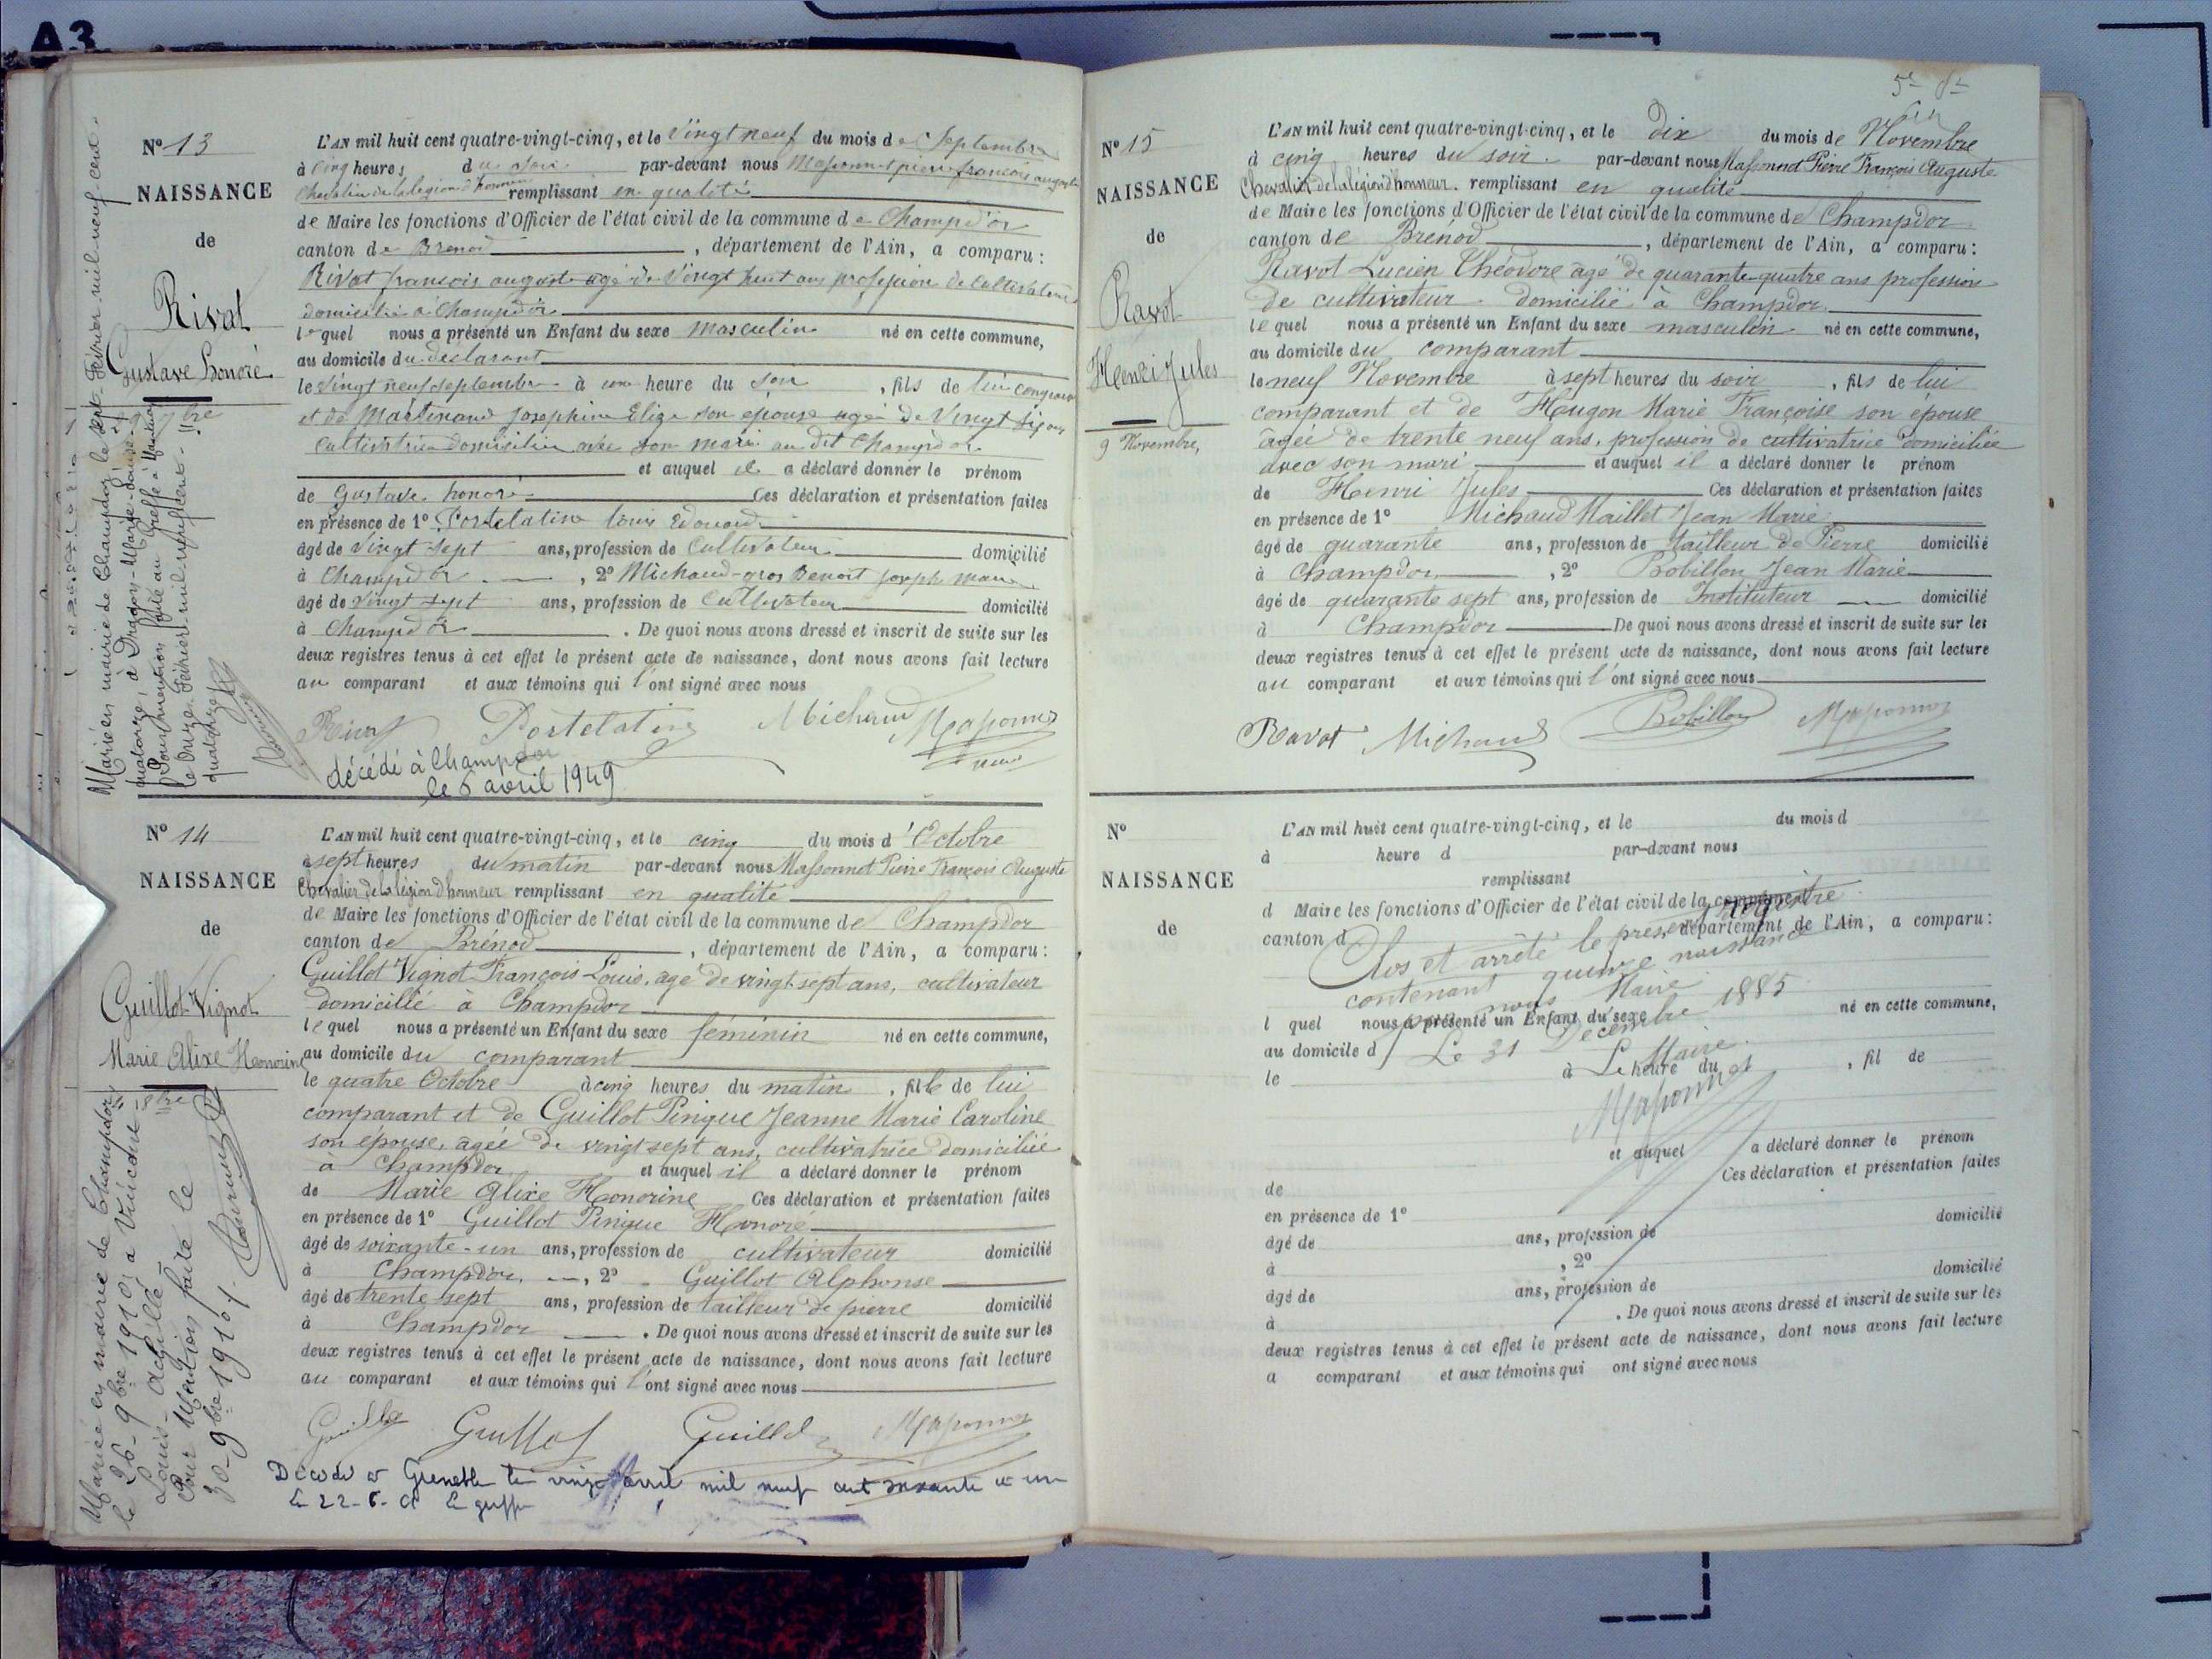 A3
N° 13
NAISSANCE
de
Rivat
Gustave honoré
Marié en mairie de Champdor le sept Février mil-neuf-cent-
quatorze à Dragon-Marie-Louise
Pour mention faite au Greffe à Nantua
le onze Février mil neuf cent
quatorze
L'AN mil huit cent quatre-vingt-cinq, et le Vingt neuf du mois de Septembre
à Cinq heures du soir par-devant nous Massonnot pierre françois auguste
Chevalier de la legion d'honneur remplissant en qualité
de Maire les fonctions d'Officier de l'état civil de la commune de Champd'or
canton de Brenod, département de l'Ain, a comparu:
Rivat françois auguste agé de Vingt huit ans profession de Cultivateur
domicilié à Champd'or
lequel nous a présenté un Enfant du sexe masculin né en cette commune,
au domicile du declarant
le Vingt neuf septembre à une heure du soir, fils de lui comparant
et de Martinand Josephine Eliza son épouse agée de Vingt six ans
Cultivatrice domiciliée avec son mari au dit Champdor
et auquel il a déclaré donner le prénom
de Gustave honoré Ces déclaration et présentation faites
en présence de 1° Postelatine Louis Edouard
âgé de Vingt sept ans, profession de Cultivateur domicilié
à Champdor, 2° Michaud-gros Benoit joseph marie
âgé de Vingt sept ans, profession de Cultivateur domicilié
à Champdor. De quoi nous avons dressé et inscrit de suite sur les
deux registres tenus à cet effet le présent acte de naissance, dont nous avons fait lecture
au comparant et aux témoins qui l'ont signé avec nous
Rivat Postelatine Michaud Massonnot
décédé à Champdor
le 6 avril 1949
N° 14
NAISSANCE
de
Guillot Vignot
Marie Alixe Honorine
Mariée en mairie de Champdor
le 26-9bre 1910 à Vuicont
Louis-Achille
Pour Mention faite le
30-9bre 1910
L'AN mil huit cent quatre-vingt-cinq, et le cinq du mois d'Octobre
à sept heures du matin par-devant nous Massonnot Pierre François Auguste
Chevalier de la légion d'honneur remplissant en qualité
de Maire les fonctions d'Officier de l'état civil de la commune de Champdor
canton de Brénod, département de l'Ain, a comparu:
Guillot Vignot François Louis, agé de vingt-sept ans, cultivateur
domicilié à Champdor
lequel nous a présenté un Enfant du sexe féminin né en cette commune,
au domicile du comparant
le quatre Octobre à cinq heures du matin, fille de lui
comparant et de Guillot Pinque Jeanne Marie Caroline
son épouse, agée de vingt sept ans, cultivatrice domiciliée
à Champdor et auquel il a déclaré donner le prénom
de Marie Alixe Honorine Ces déclaration et présentation faites
en présence de 1° Guillot Pinque Honoré
âgé de soixante-un ans, profession de cultivateur domicilié
à Champdor, 2° Guillot Alphonse
âgé de trente sept ans, profession de tailleur de pierre domicilié
à Champdor. De quoi nous avons dressé et inscrit de suite sur les
deux registres tenus à cet effet le présent acte de naissance, dont nous avons fait lecture
au comparant et aux témoins qui l'ont signé avec nous
Guillot Guillot Guillot Massonnot
Décédée à Grenoble le vingt avril mil neuf cent soixante et un
N° 15
NAISSANCE
de
Ravot
Henri Jules
9 Novembre,
L'AN mil huit cent quatre-vingt-cinq, et le dix du mois de Novembre
à cinq heures du soir par-devant nous Massonnot Pierre François Auguste
Chevalier de la légion d'honneur remplissant en qualité
de Maire les fonctions d'Officier de l'état civil de la commune de Champdor
canton de Brénod, département de l'Ain, a comparu:
Ravot Lucien Théodore agé de quarante-quatre ans profession
de cultivateur domicilié à Champdor
lequel nous a présenté un Enfant du sexe masculin né en cette commune,
au domicile du comparant
le neuf Novembre à sept heures du soir, fils de lui
comparant et de Hugon Marie Françoise son épouse
âgée de trente neuf ans, profession de cultivatrice domiciliée
avec son mari et auquel il a déclaré donner le prénom
de Henri Jules Ces déclaration et présentation faites
en présence de 1° Michaud Maillet Jean Marie
âgé de quarante ans, profession de tailleur de Pierre domicilié
à Champdor, 2° Bobillon Jean Marie
âgé de quarante sept ans, profession de Instituteur domicilié
à Champdor De quoi nous avons dressé et inscrit de suite sur les
deux registres tenus à cet effet le présent acte de naissance, dont nous avons fait lecture
au comparant et aux témoins qui l'ont signé avec nous
Ravot Michaud Bobillon Massonnot
N°
NAISSANCE
de
L'AN mil huit cent quatre-vingt-cinq, et le du mois d
à heure d par-devant nous
remplissant
d Maire les fonctions d'Officier de l'état civil de la commune d
canton d, département de l'Ain, a comparu:
Clos et arrêté le présent registre
contenant quinze naissances
par nous Maire
l quel nous a présenté un Enfant du sexe né en cette commune,
au domicile d
Le 31 Décembre 1885
Le Maire
le à heure du, fil de
Massonnot
et auquel a déclaré donner le prénom
de Ces déclaration et présentation faites
en présence de 1°
âgé de ans, profession de domicilié
à, 2°
âgé de ans, profession de domicilié
à. De quoi nous avons dressé et inscrit de suite sur les
deux registres tenus à cet effet le présent acte de naissance, dont nous avons fait lecture
a comparant et aux témoins qui ont signé avec nous